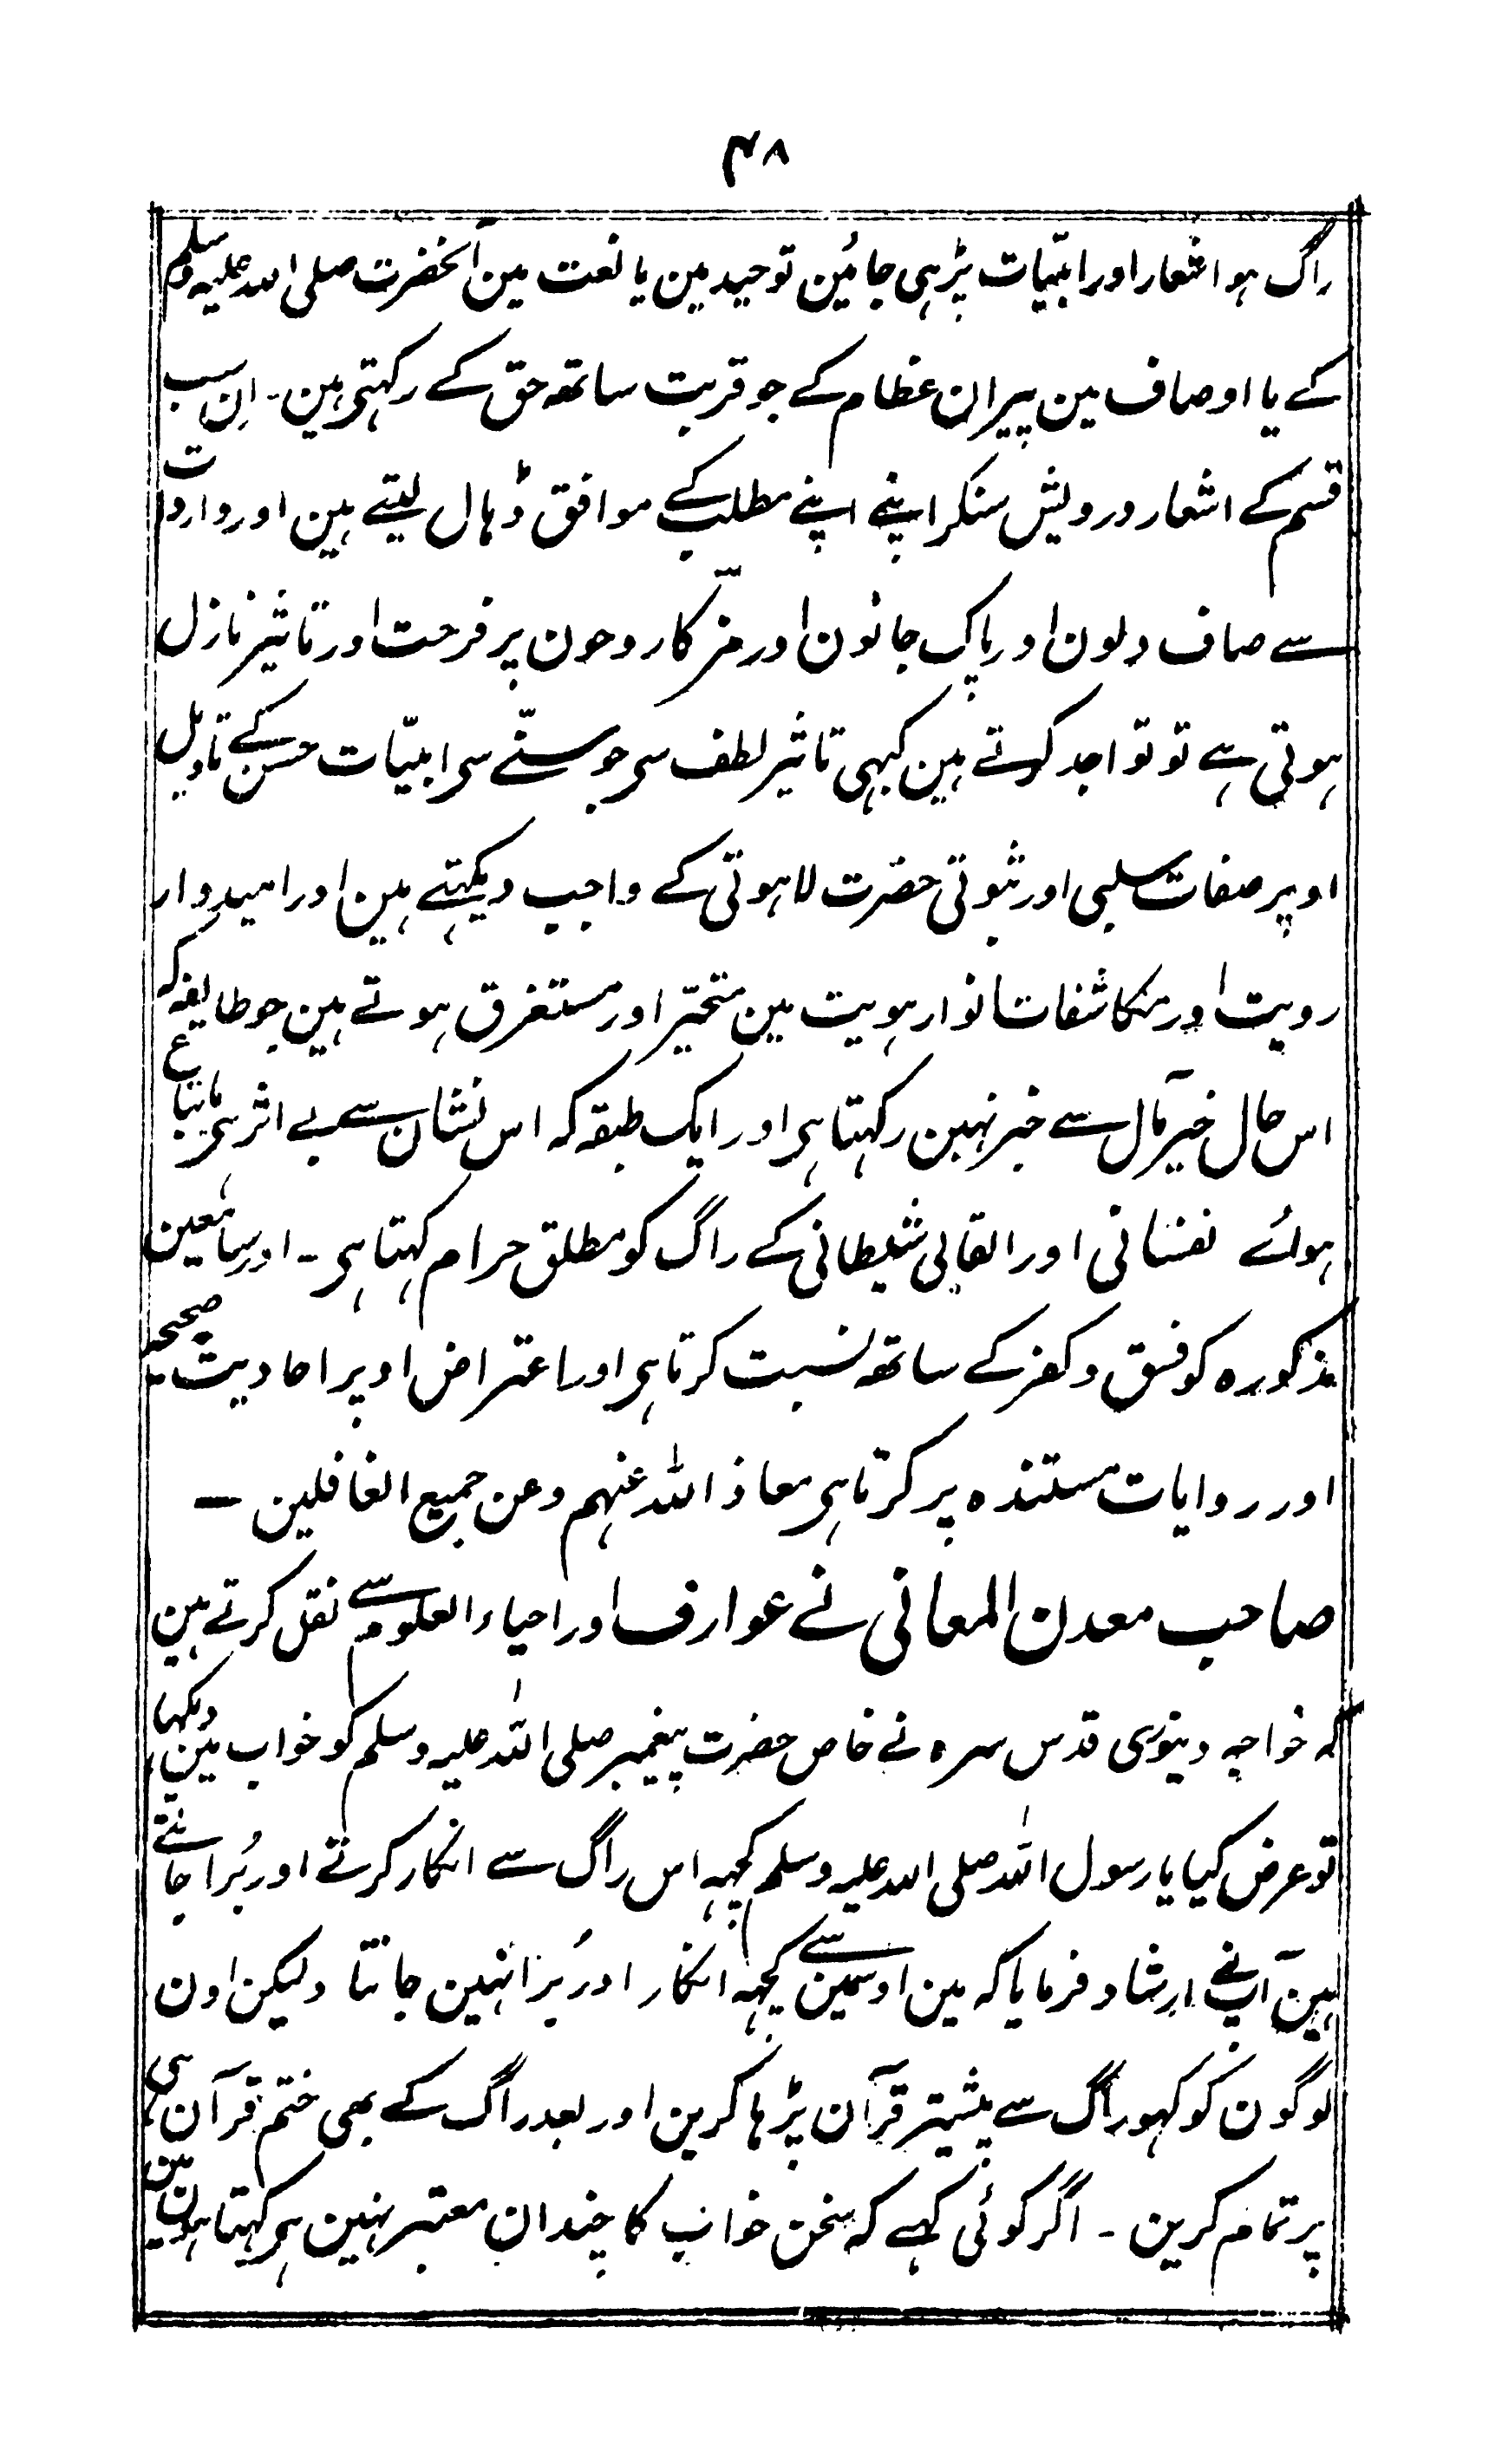 ۴۸
راگ ہو اشعار اور ابیّات پڑہی جائین توحید مین یا نعت مین آنحضرت صلی اللہ علیہ وسلم
کے یا اوصاف مین پیران عظام کے جو قربت ساتھ حق کے رکہتی ہین۔ اِن سب
قسم کے اشعار درویش سنکر اپنے اپنے مطلب کے موافق ڈہال لیتے ہین اور واردات
سے صاف دلون اور پاک جانون اور مزّکا روحون پر فرحت اور تاثیر نازل
ہوتی ہے تو تواجد کرتے ہین کبہی تاثیر لطف سی جو سنّے سی ابیّات حسن کے تاویل
اوپر صفات سلبی اور ثبوتی حضرت لاہوتی کے واجب دیکہتے ہین اور امیدوار
رویت اور مکاشفات انوار ہویت مین متحیّر اور مستغرق ہوتے ہین جو طایفہ کہ
اس حال خیر مآل سے خبر نہین رکہتا ہی اور ایک طبقہ کہ اس نشان سے بے اثر ہی باتباع
ہوائے نفسانی اور القای شیطانی کے راگ کو مطلق حرام کہتا ہی ۔ اور سامعین
مذکورہ کو فسق و کفر کے ساتھ نسبت کرتا ہی اور اعتراض اوپر احادیث صحیحہ
اور روایات مستندہ پر کرتا ہی معاذ اللہ عنہم وعن جمیع الغافلین ۔
صاحب معدن المعانی نے عوارف اور احیاء العلوم سے نقل کرتے ہین
کہ خواجہ دینوری قدس سرہ نے خاص حضرت پیغمبر صلی اللہ علیہ وسلم کو خواب مین دیکہا
تو عرض کیا یا رسول اللہ صلی اللہ علیہ وسلم کچہہ اس راگ سے انکار کرتے اور بُرا جانتے
ہین آپنے ارشاد فرمایا کہ مین اوسمین سے کچہہ انکار اور بُرا نہین جانتا ولیکن اون
لوگون کو کہو راگ سے پیشتر قرآن پڑہا کرین اور بعد راگ کے بھی ختم قرآن ہی
پر تمام کرین ۔ اگر کوئی کہے کہ سخن خواب کا چندان معتبر نہین ہی کہتا ہون مین